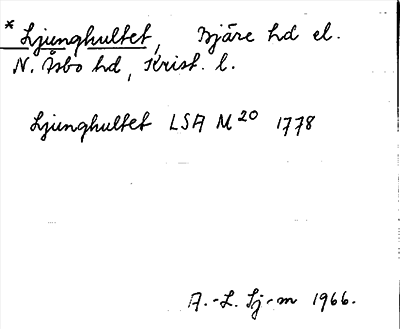 * Ljunghultet, Bjäre hd el.
N. Åsbo hd, Krist. l.
Ljunghultet LSA M20 1778
A.-L. Sj-m 1966.